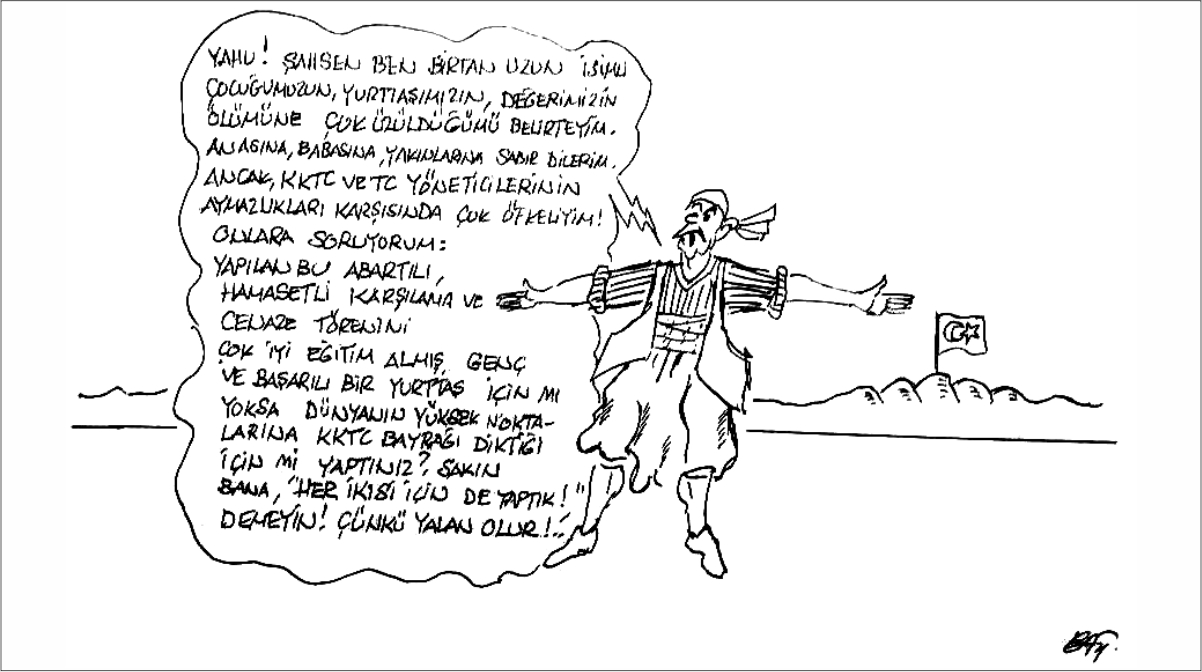 YAHU! ŞAHSEN BEN BİRTAN UZUN İSİMLİ
ÇOCUĞUMUZUN, YURTTAŞIMIZIN, DEĞERİMİZİN
ÖLÜMÜNE ÇOK ÜZÜLDÜĞÜMÜ BELİRTEYİM.
ANASINA, BABASINA, YAKINLARINA SABIR DİLERİM.
ANCAK, KKTC VE TC YÖNETİCİLERİNİN
AYMAZLIKLARI KARŞISINDA ÇOK ÖFKELİYİM!
ONLARA SORUYORUM:
YAPILAN BU ABARTILI,
HAMASETLİ KARŞILAMA VE
CENAZE TÖRENİNİ
ÇOK İYİ EĞİTİM ALMIŞ, GENÇ
VE BAŞARILI BİR YURTTAŞ İÇİN Mİ
YOKSA DÜNYANIN YÜKSEK NOKTA-
LARINA KKTC BAYRAĞI DİKTİĞİ
İÇİN Mİ YAPTINIZ? SAKIN
BANA, "HER İKİSİ İÇİN DE YAPTIK!"
DEMEYİN! ÇÜNKÜ YALAN OLUR!..